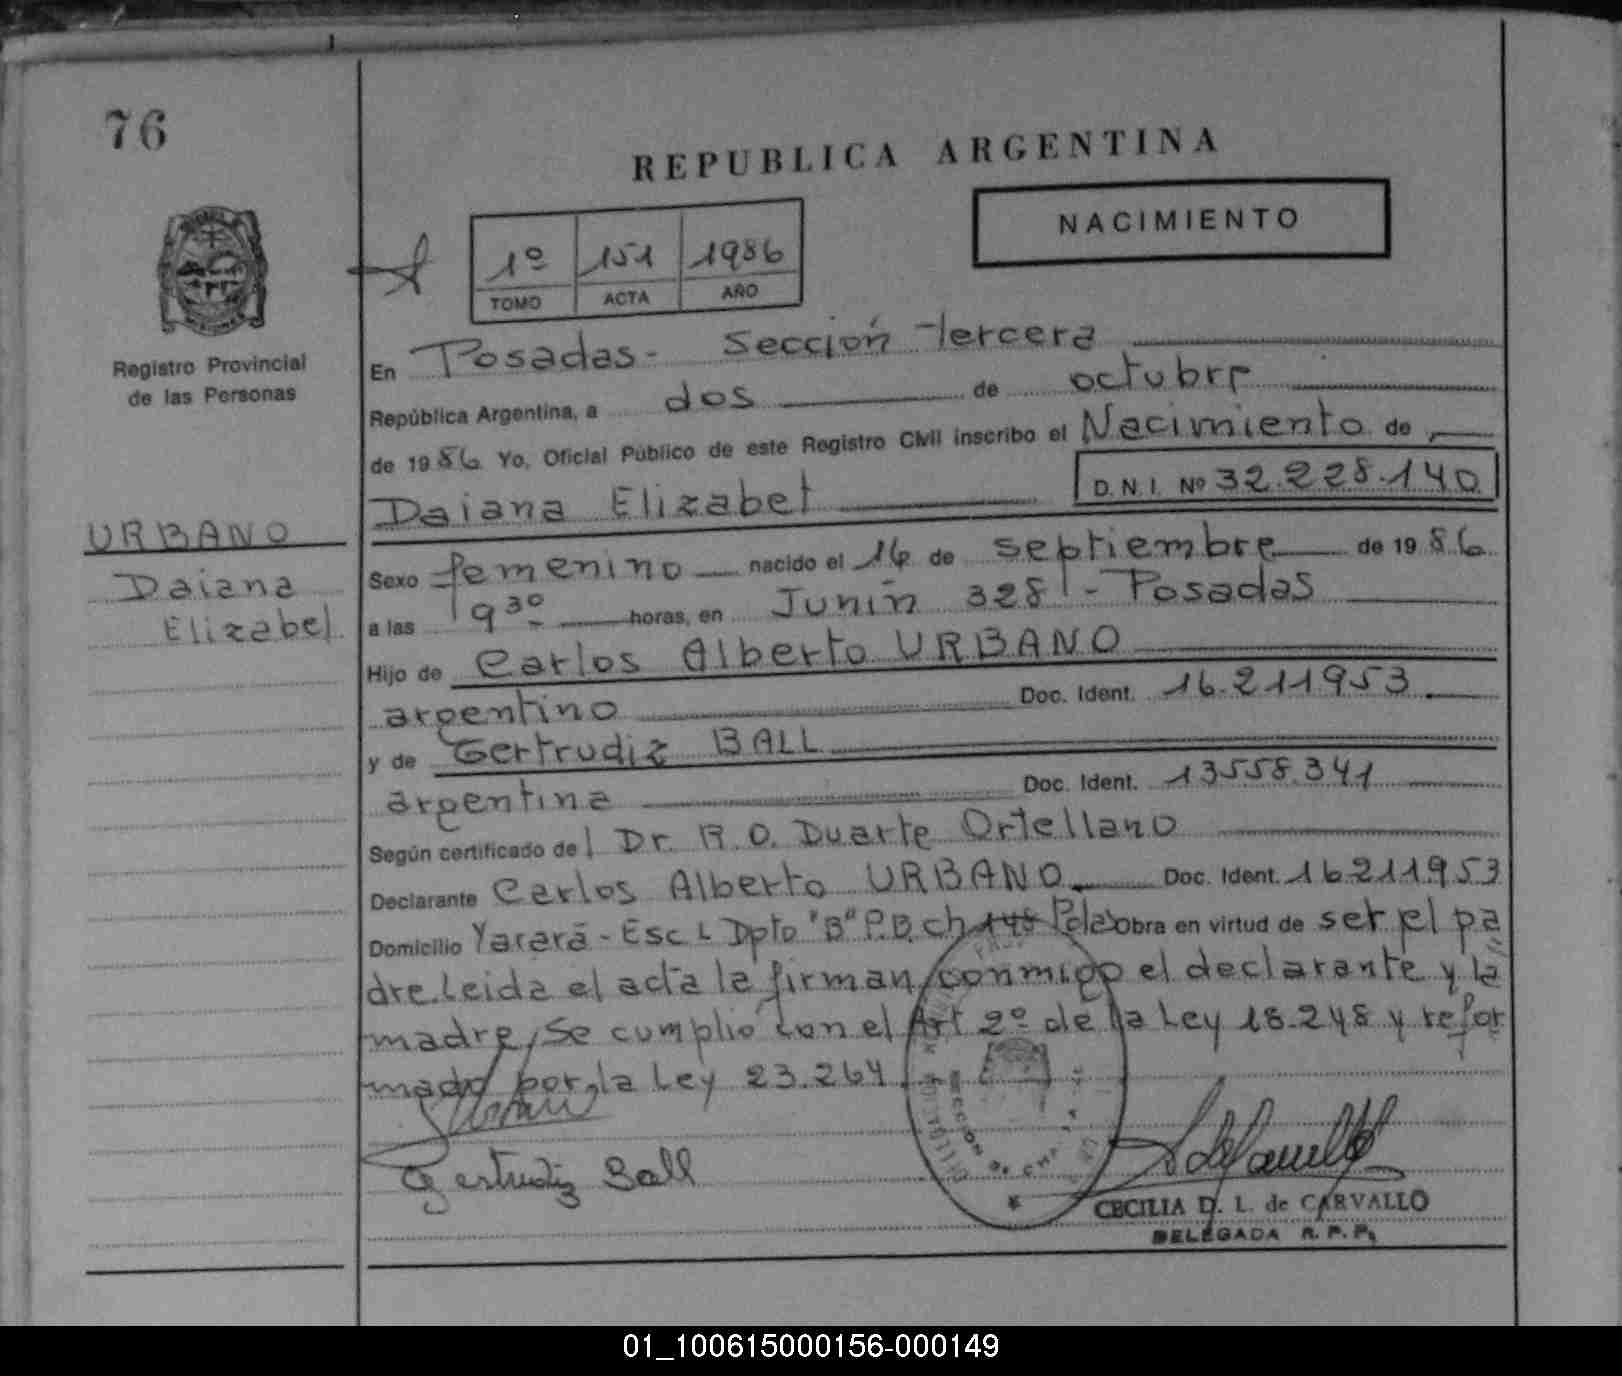 76
REPUBLICA ARGENTINA
NACIMIENTO
1º 151 1986
TOMO ACTA AÑO
Registro Provincial
de las Personas
URBANO
Daiana
Elizabet
En Posadas - Sección Tercera
República Argentina, a dos de octubre
de 1986 Yo, Oficial Público de este Registro Civil inscribo el Nacimiento de
Daiana Elizabet D.N.I. Nº 32.228.140
Sexo femenino nacido el 16 de septiembre de 1986
a las 9 30 horas, en Junín 328 - Posadas
Hijo de Carlos Alberto URBANO
argentino Doc. Ident. 16.211953
y de Gertrudiz BALL
argentina Doc. Ident. 13558.341
Según certificado del Dr. R. O. Duarte Ortellano
Declarante Carlos Alberto URBANO Doc. Ident. 16211953
Domicilio Yarará - Esc L Dpto "B" P.B. Ch 148 Pdas obra en virtud de ser el pa
dre. Leida el acta la firman conmigo el declarante y la
madre, Se cumplió con el Art 2º de la Ley 18.248 y refor
mado por la Ley 23.264
Gertrudiz Ball
CECILIA D. L. de CARVALLO
DELEGADA R. P. P.
01_100615000156-000149